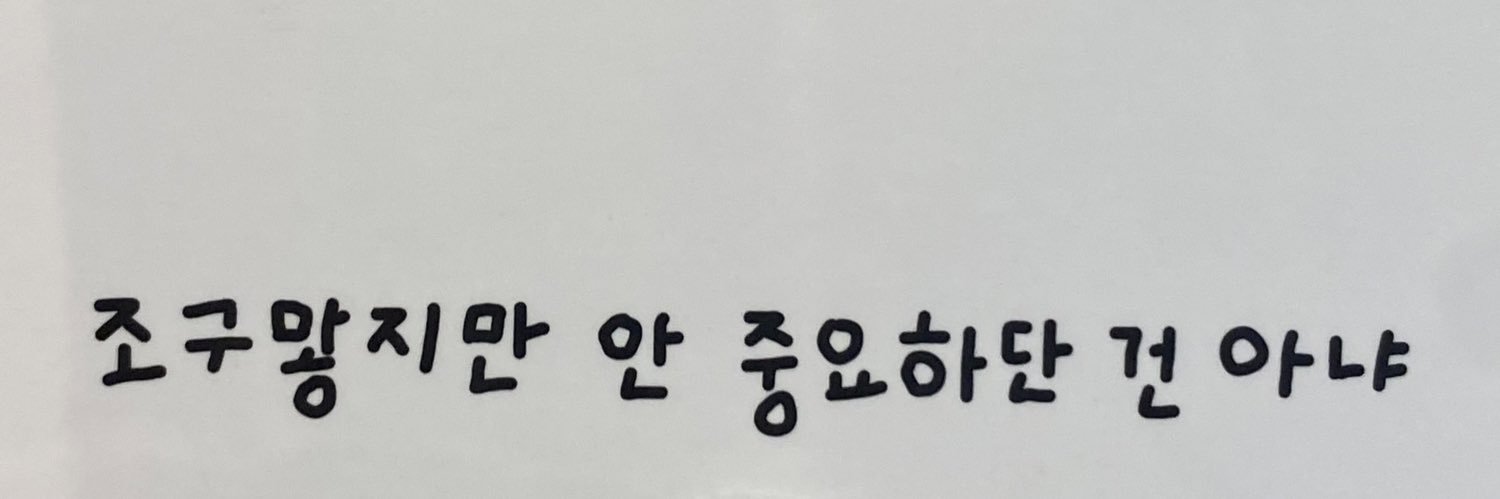 조구맣지만 안 중요하단 건 아냐